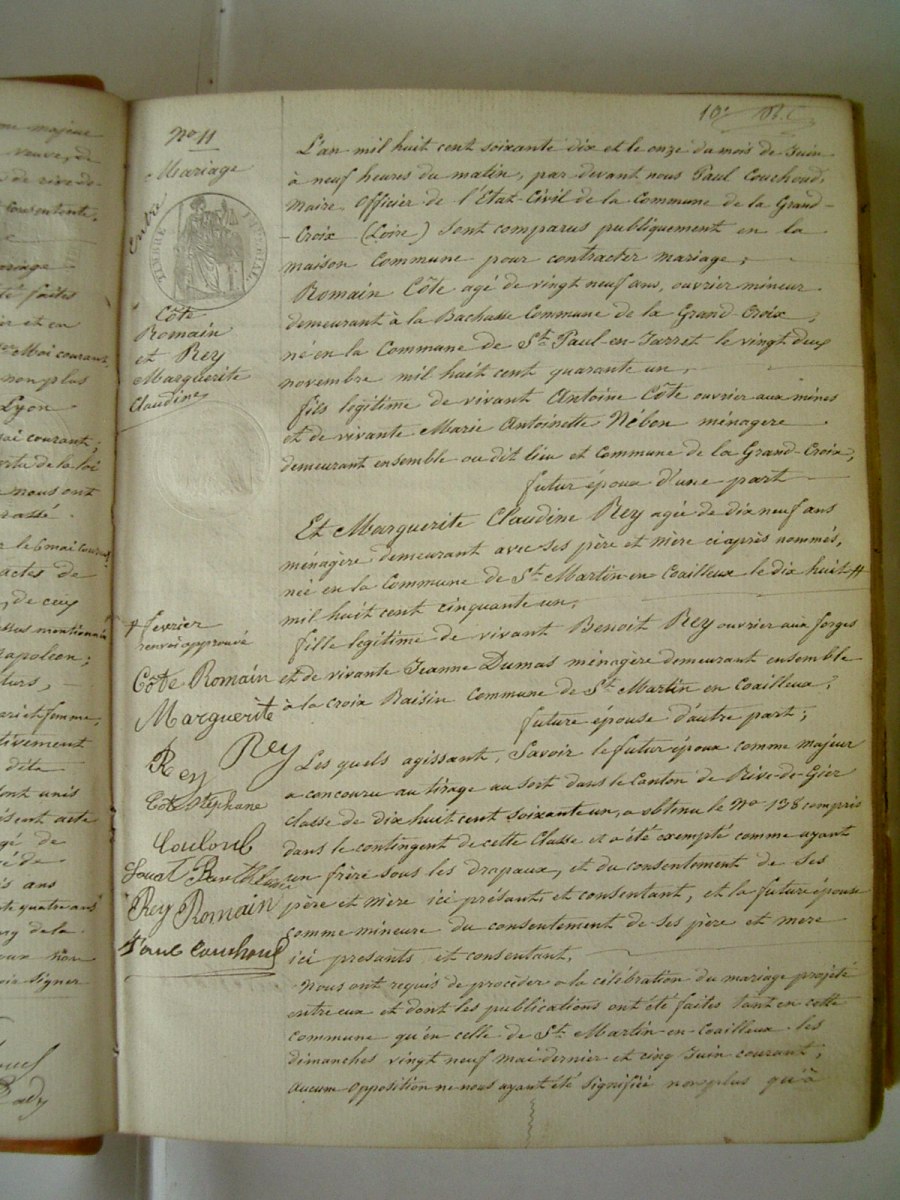 me majeur
veuve, de
de rive-de-
consentante,
mariage
été faites
ier et en
mai courant,
non plus
Lyon
mai courant;
vertu de la loi
nous ont
le 6 mai courant
actes de
de ceux
dessus mentionnés
Napoléon;
mari et femme,
dont unis
acte
gé de
is ans
quatre ans
signer
No 11
Mariage
Entre
TIMBRE IMPERIAL
Côte
Romain
et Rey
Marguerite
Claudine
10e
L'an mil huit cent soixante dix et le onze du mois de Juin
à neuf heures du matin, par devant nous Paul Couchoud,
Maire, Officier de l'Etat-Civil de la Commune de la Grand-
-Croix (Loire) sont comparus publiquement en la
maison Commune pour contracter mariage;
Romain Côte agé de vingt neuf ans, ouvrier mineur
demeurant à la Bachasse Commune de la Grand-Croix;
né en la Commune de St. Paul-en-Jarret le vingt deux
novembre mil huit cent quarante un,
fils légitime de vivant Antoine Côte ouvrier aux mines
et de vivante Marie Antoinette Nébon ménagère
demeurant ensemble au dit lieu et Commune de la Grand-Croix,
futur époux d'une part
Et Marguerite Claudine Rey agée de dix neuf ans
ménagère demeurant avec ses père et mère ci après nommés,
née en la Commune de St. Martin-en-Coailleux le dix huit #
mil huit cent cinquante un,
fille légitime de vivant Benoit Rey ouvrier aux forges
et de vivante Jeanne Dumas ménagère demeurant ensemble
à la croix Raisin Commune de St. Martin en Coailleux;
future épouse d'autre part;
Les quels agissant, Savoir le futur époux comme majeur
a concouru au tirage au sort dans le Canton de Rive-de-Gier
classe de dix huit cent soixante un, a obtenu le No 138 compris
dans le contingent de cette Classe et a été exempté comme ayant
un frère sous les drapaux, et du consentement de ses
père et mère ici présants et consentant, et la future épouse
comme mineure du consentement de ses père et mere
ici presants et consentant,
Nous ont requis de procéder à la célébration du mariage projeté
entre eux et dont les publications ont été faites tant en cette
commune qu'en celle de St. Martin-en-Coailleux les
dimanches vingt neuf mai dernier et cinq Juin courant;
aucune opposition ne nous ayant été signifiée non plus qu'à
# fevrier
renvoi approuvé
Côte Romain
Marguerite
Rey
Rey
Côte Stéphane
Couloub
Jouat Barthélemi
Rey Romain
Paul Couchoud